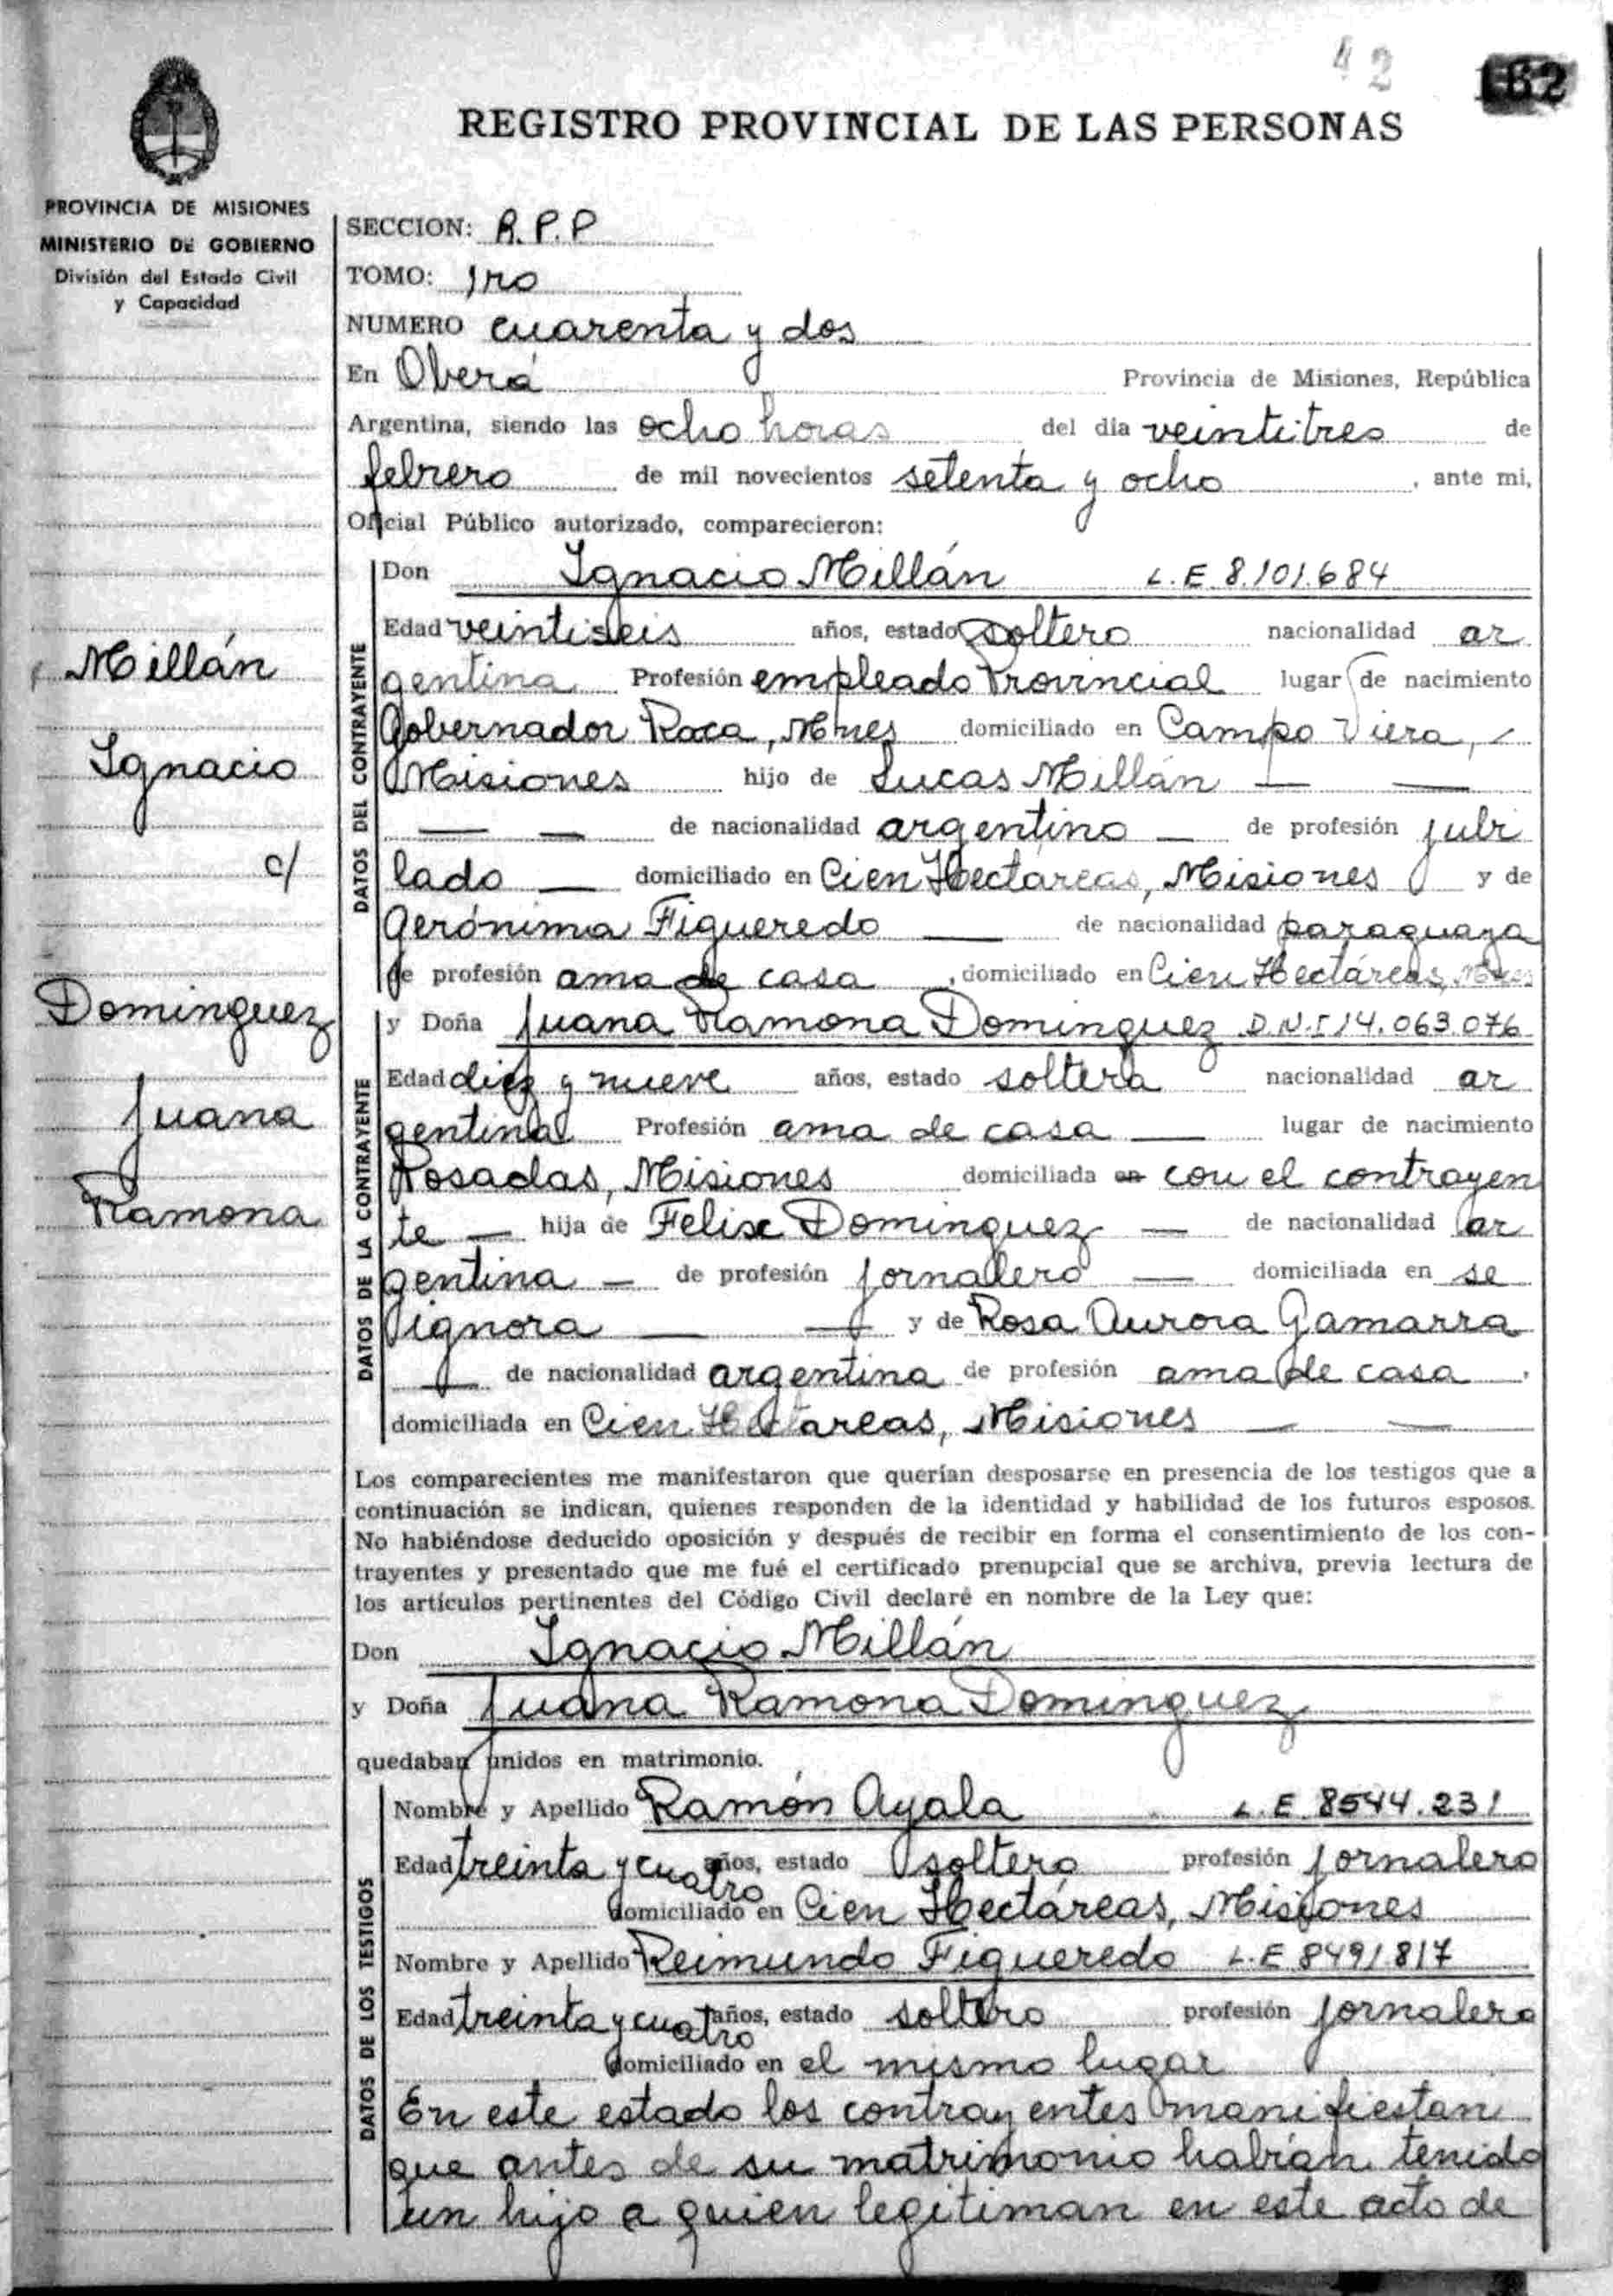 42
162
REGISTRO PROVINCIAL DE LAS PERSONAS
PROVINCIA DE MISIONES
MINISTERIO DE GOBIERNO
División del Estado Civil
y Capacidad
Millán
Ignacio
c/
Dominguez
Juana
Ramona
SECCION: R.P.P
TOMO: 1ro
NUMERO cuarenta y dos
En Oberá Provincia de Misiones, República
Argentina, siendo las ocho horas del día veintitres de
febrero de mil novecientos setenta y ocho, ante mi,
Oficial Público autorizado, comparecieron:
DATOS DEL CONTRAYENTE
Don Ignacio Millán L.E 8.101.684
Edad veintiseis años, estado soltero nacionalidad ar
gentina Profesión empleado Provincial lugar de nacimiento
Gobernador Roca, Mnes domiciliado en Campo Viera,
Misiones hijo de Lucas Millán — —
— — de nacionalidad argentino — de profesión jubi
lado — domiciliado en Cien Hectáreas, Misiones y de
Gerónima Figueredo — de nacionalidad paraguaya
de profesión ama de casa, domiciliado en Cien Hectáreas, Mnes
DATOS DE LA CONTRAYENTE
y Doña Juana Ramona Dominguez D.N.I 14.063.076
Edad diez y nueve años, estado soltera nacionalidad ar
gentina Profesión ama de casa — lugar de nacimiento
Posadas, Misiones domiciliada en con el contrayen
te — hija de Felix Dominguez — de nacionalidad ar
gentina — de profesión jornalero — domiciliada en se
ignora — — y de Rosa Aurora Gamarra
— de nacionalidad argentina de profesión ama de casa,
domiciliada en Cien Hectareas, Misiones — —
Los comparecientes me manifestaron que querían desposarse en presencia de los testigos que a
continuación se indican, quienes responden de la identidad y habilidad de los futuros esposos.
No habiéndose deducido oposición y después de recibir en forma el consentimiento de los con-
trayentes y presentado que me fué el certificado prenupcial que se archiva, previa lectura de
los artículos pertinentes del Código Civil declaré en nombre de la Ley que:
Don Ignacio Millán
y Doña Juana Ramona Dominguez
quedaban unidos en matrimonio.
DATOS DE LOS TESTIGOS
Nombre y Apellido Ramón Ayala L.E 8544.231
Edad treinta y cuatro años, estado soltero profesión jornalero
domiciliado en Cien Hectáreas, Misiones
Nombre y Apellido Reimundo Figueredo L.E 8491817
Edad treinta y cuatro años, estado soltero profesión jornalero
domiciliado en el mismo lugar
En este estado los contrayentes manifiestan
que antes de su matrimonio habían tenido
un hijo a quien legitiman en este acto de